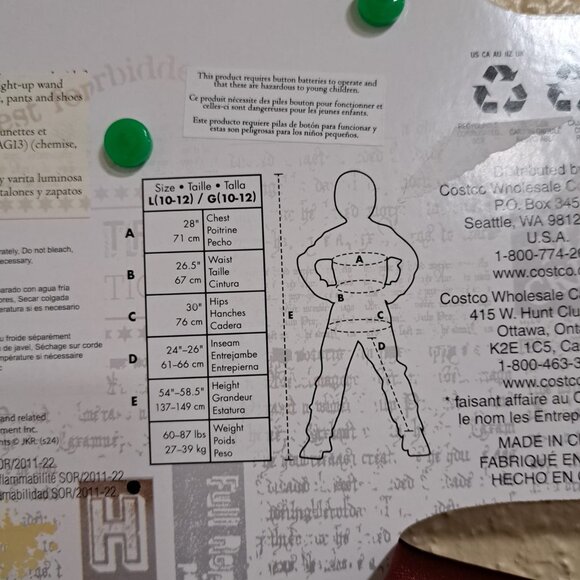 ght-up wand
, pants and shoes
unettes et
AG13) (chemise,
y varita luminosa
talones y zapatos
This product requires button batteries to operate and
that these are hazardous to young children.
Ce produit nécessite des piles bouton pour fonctionner et
celles-ci sont dangereuses pour les jeunes enfants.
Este producto requiere pilas de botón para funcionar y
éstas son peligrosas para los niños pequeños.
US CA AU NZ UK
Size • Taille • Talla
L(10-12) / G(10-12)
A
28"
71 cm
Chest
Poitrine
Pecho
B
26.5"
67 cm
Waist
Taille
Cintura
C
30"
76 cm
Hips
Hanches
Cadera
D
24"-26"
61-66 cm
Inseam
Entrejambe
Entrepierna
E
54"-58.5"
137-149 cm
Height
Grandeur
Estatura
60-87 lbs
27-39 kg
Weight
Poids
Peso
A
B
C
D
E
rately, Do not bleach,
necessary,
parado con agua fria
ores, Secar colgada
eratura si es necesario
u froide séparément
de javel, Séchage sur corde
mpérature si nécessaire
and related
ment Inc.
ts © JKR. (s24)
OR/2011-22.
flammabilité SOR/2011-22
amabilidad SOR/2011-22
Distributed b
Costco Wholesale C
P.O. Box 345
Seattle, WA 9812
U.S.A.
1-800-774-2
www.costco.
Costco Wholesale C
415 W. Hunt Clu
Ottawa, Ont
K2E 1C5, Ca
1-800-463-3
www.costc
* faisant affaire au C
le nom les Entrep
MADE IN C
FABRIQUÉ EN
HECHO EN C
H